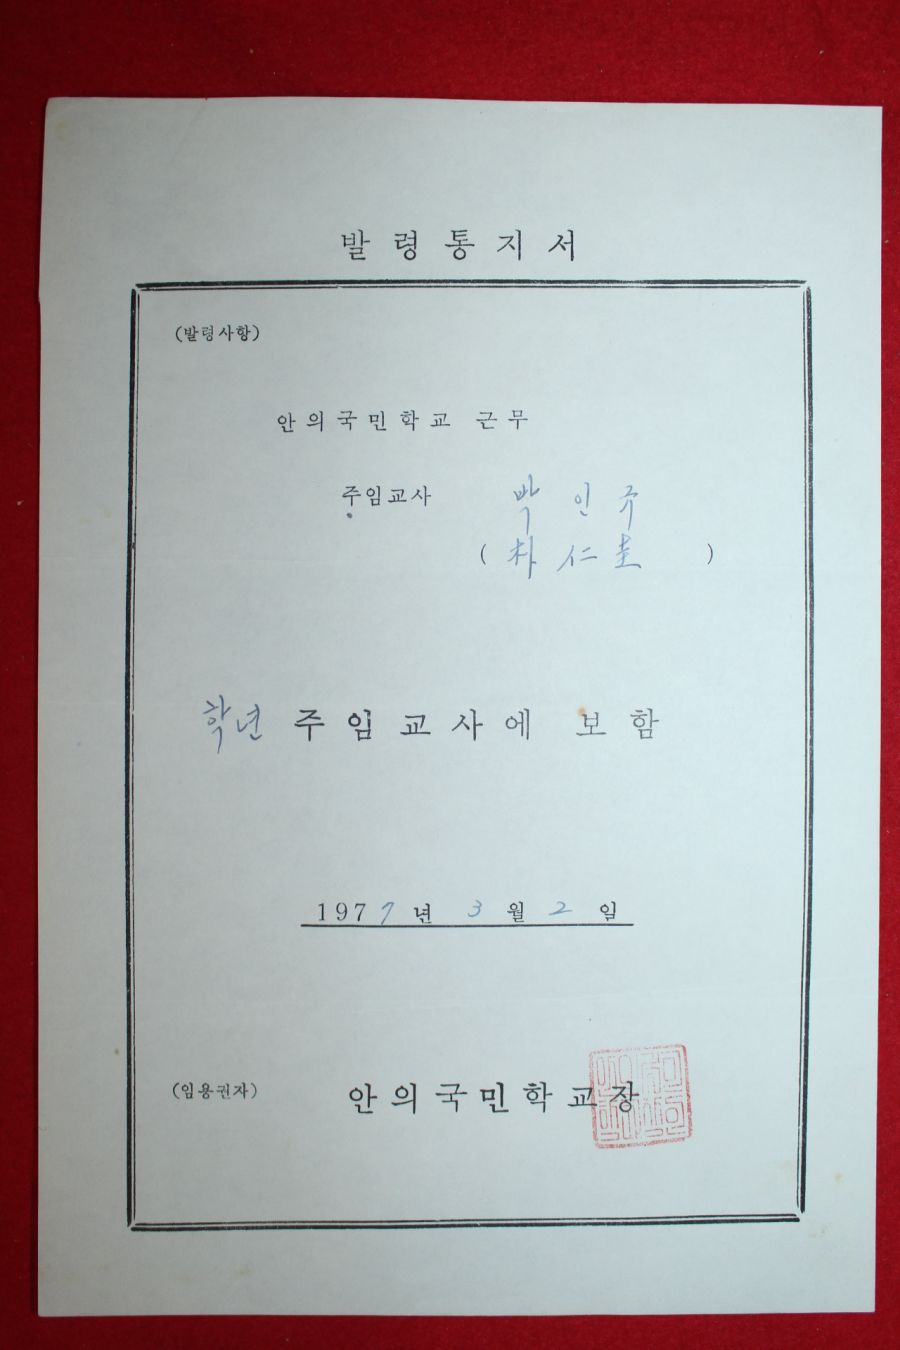 발령통지서
(발령사항)
안의국민학교 근무
주임교사 박인규
(朴仁圭)
학년 주임교사에 보함
1977년 3월 2일
(임용권자) 안의국민학교장